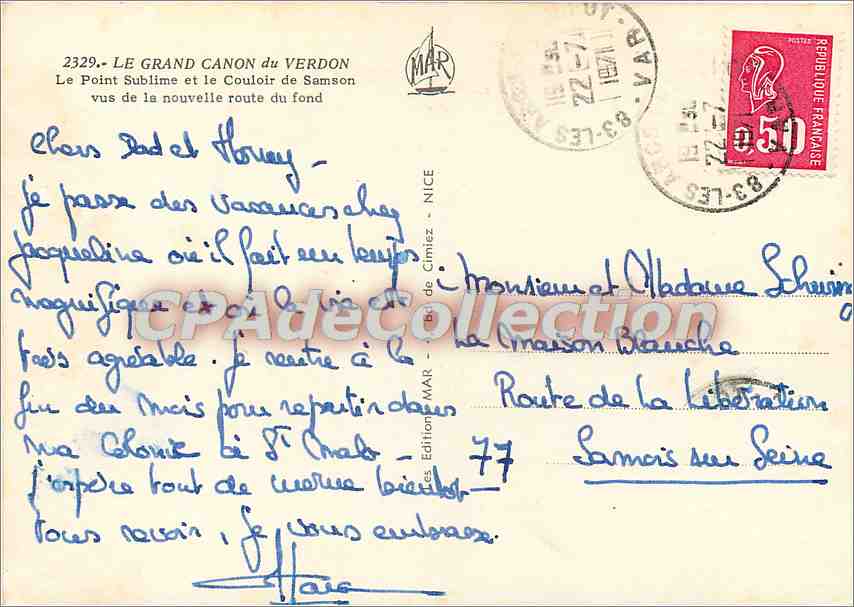 2329.- LE GRAND CANON du VERDON
Le Point Sublime et le Couloir de Samson
vus de la nouvelle route du fond
MAR
83-LES ARCS - VAR
19 H
22 -7
1971
83-LES ARCS - VAR
19 H
22 -7
1971
POSTES
REPUBLIQUE FRANÇAISE
0,50
Chers Dad et Honey -
je passe des vacances chez
Jacqueline où il fait un temps
magnifique et où la vie est
très agréable. je rentre à la
fin du mois pour repartir dans
ma Colonie à St Malo -
j'espère tout de meme bientot
vous revoir, je vous embrasse.
Les Editions MAR - Bd de Cimiez - NICE
Monsieur et Madame
La Maison Blanche
Route de La Libération
77 Samois sur Seine
CPAdeCollection.com